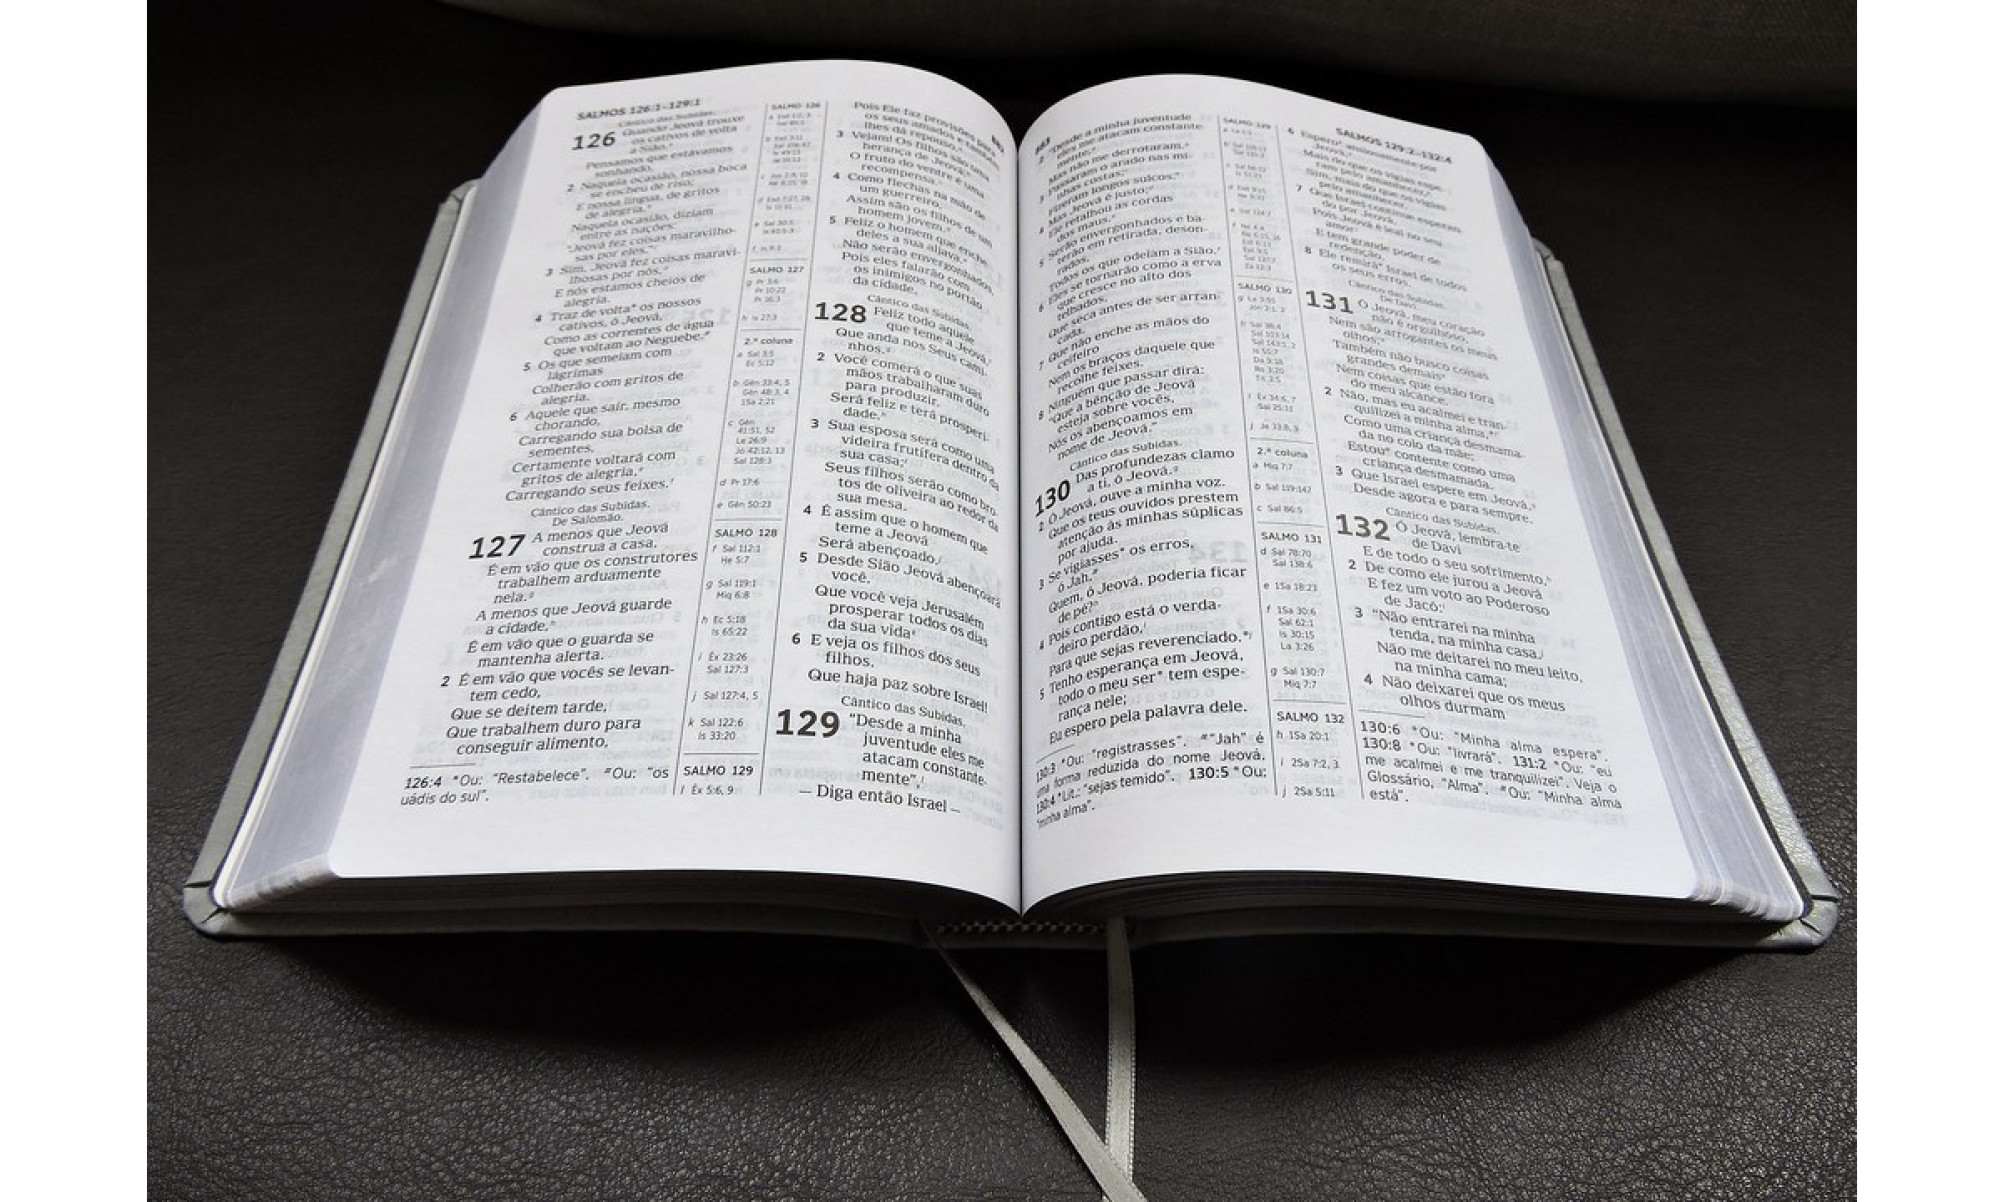 SALMOS 126:1–129:1
Cântico das Subidas.
126 Quando Jeová trouxe
os cativos de volta
a Sião,
Pensamos que estávamos
sonhando.
2 Naquela ocasião, nossa boca
se encheu de riso;
E nossa língua, de gritos
de alegria.
Naquela ocasião, diziam
entre as nações:
“Jeová fez coisas maravilho-
sas por eles.”
3 Sim, Jeová fez coisas maravi-
lhosas por nós,
E nós estamos cheios de
alegria.
4 Traz de volta* os nossos
cativos, ó Jeová,
Como as correntes de água
que voltam ao Neguebe.#
5 Os que semeiam com
lágrimas
Colherão com gritos de
alegria.
6 Aquele que sair, mesmo
chorando,
Carregando sua bolsa de
sementes,
Certamente voltará com
gritos de alegria,
Carregando seus feixes.
Cântico das Subidas.
De Salomão.
127 A menos que Jeová
construa a casa,
É em vão que os construtores
trabalhem arduamente
nela.
A menos que Jeová guarde
a cidade,
É em vão que o guarda se
mantenha alerta.
2 É em vão que vocês se levan-
tem cedo,
Que se deitem tarde,
Que trabalhem duro para
conseguir alimento,
126:4 *Ou: “Restabelece”. #Ou: “os
uádis do sul”.
SALMO 126
SALMO 127
g Pr 3:6
Pr 10:22
Pr 16:3
h Is 27:3
2.ª coluna
a Sal 3:5
Ec 5:12
b Gên 33:4, 5
Gên 48:3, 4
1Sa 2:21
c Gên
41:51, 52
Le 26:9
Jó 42:12, 13
Sal 128:3
d Pr 17:6
e Gên 50:23
SALMO 128
f Sal 112:1
He 5:7
g Sal 119:1
Miq 6:8
h Ec 5:18
Is 65:22
i Êx 23:26
Sal 127:3
j Sal 127:4, 5
k Sal 122:6
Is 33:20
SALMO 129
l Êx 5:6, 9
Pois Ele faz provisões para
os seus amados e também
lhes dá repouso.
3 Vejam! Os filhos são uma
herança de Jeová;
O fruto do ventre é uma
recompensa.
4 Como flechas na mão de
um guerreiro,
Assim são os filhos de um
homem jovem.
5 Feliz o homem que enche
deles a sua aljava.
Não serão envergonhados,
Pois eles falarão com
os inimigos no portão
da cidade.
Cântico das Subidas.
128 Feliz todo aquele
que teme a Jeová,
Que anda nos Seus cami-
nhos.
2 Você comerá o que suas
mãos trabalharam duro
para produzir.
Será feliz e terá prosperi-
dade.
3 Sua esposa será como uma
videira frutífera dentro da
sua casa;
Seus filhos serão como bro-
tos de oliveira ao redor da
sua mesa.
4 É assim que o homem que
teme a Jeová
Será abençoado.
5 Desde Sião Jeová abençoará
você.
Que você veja Jerusalém
prosperar todos os dias
da sua vida
6 E veja os filhos dos seus
filhos.
Que haja paz sobre Israel!
Cântico das Subidas.
129 “Desde a minha
juventude eles me
atacam constante-
mente”,
— Diga então Israel —
SALMOS 129:2–132:4
2 “Desde a minha juventude
eles me atacam constante-
mente,
Mas não me derrotaram.
3 Passaram o arado nas mi-
nhas costas;
Fizeram longos sulcos.”
4 Mas Jeová é justo;
Ele retalhou as cordas
dos maus.
5 Serão envergonhados e ba-
terão em retirada, deson-
rados,
Todos os que odeiam a Sião.
6 Eles se tornarão como a erva
que cresce no alto dos
telhados,
Que seca antes de ser arran-
cada,
7 Que não enche as mãos do
ceifeiro
Nem os braços daquele que
recolhe feixes.
8 Ninguém que passar dirá:
“Que a bênção de Jeová
esteja sobre vocês,
Nós os abençoamos em
nome de Jeová.”
Cântico das Subidas.
130 Das profundezas clamo
a ti, ó Jeová.
2 Ó Jeová, ouve a minha voz.
Que os teus ouvidos prestem
atenção às minhas súplicas
por ajuda.
3 Se vigiasses* os erros,
ó Jah,#
Quem, ó Jeová, poderia ficar
de pé?
4 Pois contigo está o verda-
deiro perdão,
Para que sejas reverenciado.*
5 Tenho esperança em Jeová,
todo o meu ser* tem espe-
rança nele;
Eu espero pela palavra dele.
130:3 *Ou: “registrasses”. #“Jah” é
uma forma reduzida do nome Jeová.
130:4 *Lit.: “sejas temido”. 130:5 *Ou:
“minha alma”.
SALMO 129
SALMO 130
2.ª coluna
a Miq 7:7
b Sal 119:147
c Sal 86:5
SALMO 131
d Sal 78:70
Sal 138:6
e 1Sa 18:23
f 1Sa 30:6
Sal 62:1
Is 30:15
La 3:26
g Sal 130:7
Miq 7:7
SALMO 132
h 1Sa 20:1
i 2Sa 7:2, 3
j 2Sa 5:11
6 Espero* ansiosamente por
Jeová,
Mais do que os vigias espe-
ram pelo amanhecer,
Sim, mais do que os vigias
pelo amanhecer.
7 Que Israel continue esperan-
do por Jeová,
Pois Jeová é leal no seu
amor
E tem grande poder de
redenção.
8 Ele remirá* Israel de todos
os seus erros.
Cântico das Subidas.
De Davi.
131 Ó Jeová, meu coração
não é orgulhoso,
Nem são arrogantes os meus
olhos;
Também não busco coisas
grandes demais
Nem coisas que estão fora
do meu alcance.
2 Não, mas eu acalmei e tran-
quilizei a minha alma,*
Como uma criança desmama-
da no colo da mãe;
Estou# contente como uma
criança desmamada.
3 Que Israel espere em Jeová,
Desde agora e para sempre.
Cântico das Subidas.
132 Ó Jeová, lembra-te
de Davi
E de todo o seu sofrimento,
2 De como ele jurou a Jeová
E fez um voto ao Poderoso
de Jacó:
3 “Não entrarei na minha
tenda, na minha casa.
Não me deitarei no meu leito,
na minha cama;
4 Não deixarei que os meus
olhos durmam
130:6 *Ou: “Minha alma espera”.
130:8 *Ou: “livrará”. 131:2 *Ou: “eu
me acalmei e me tranquilizei”. Veja o
Glossário, “Alma”. #Ou: “Minha alma
está”.